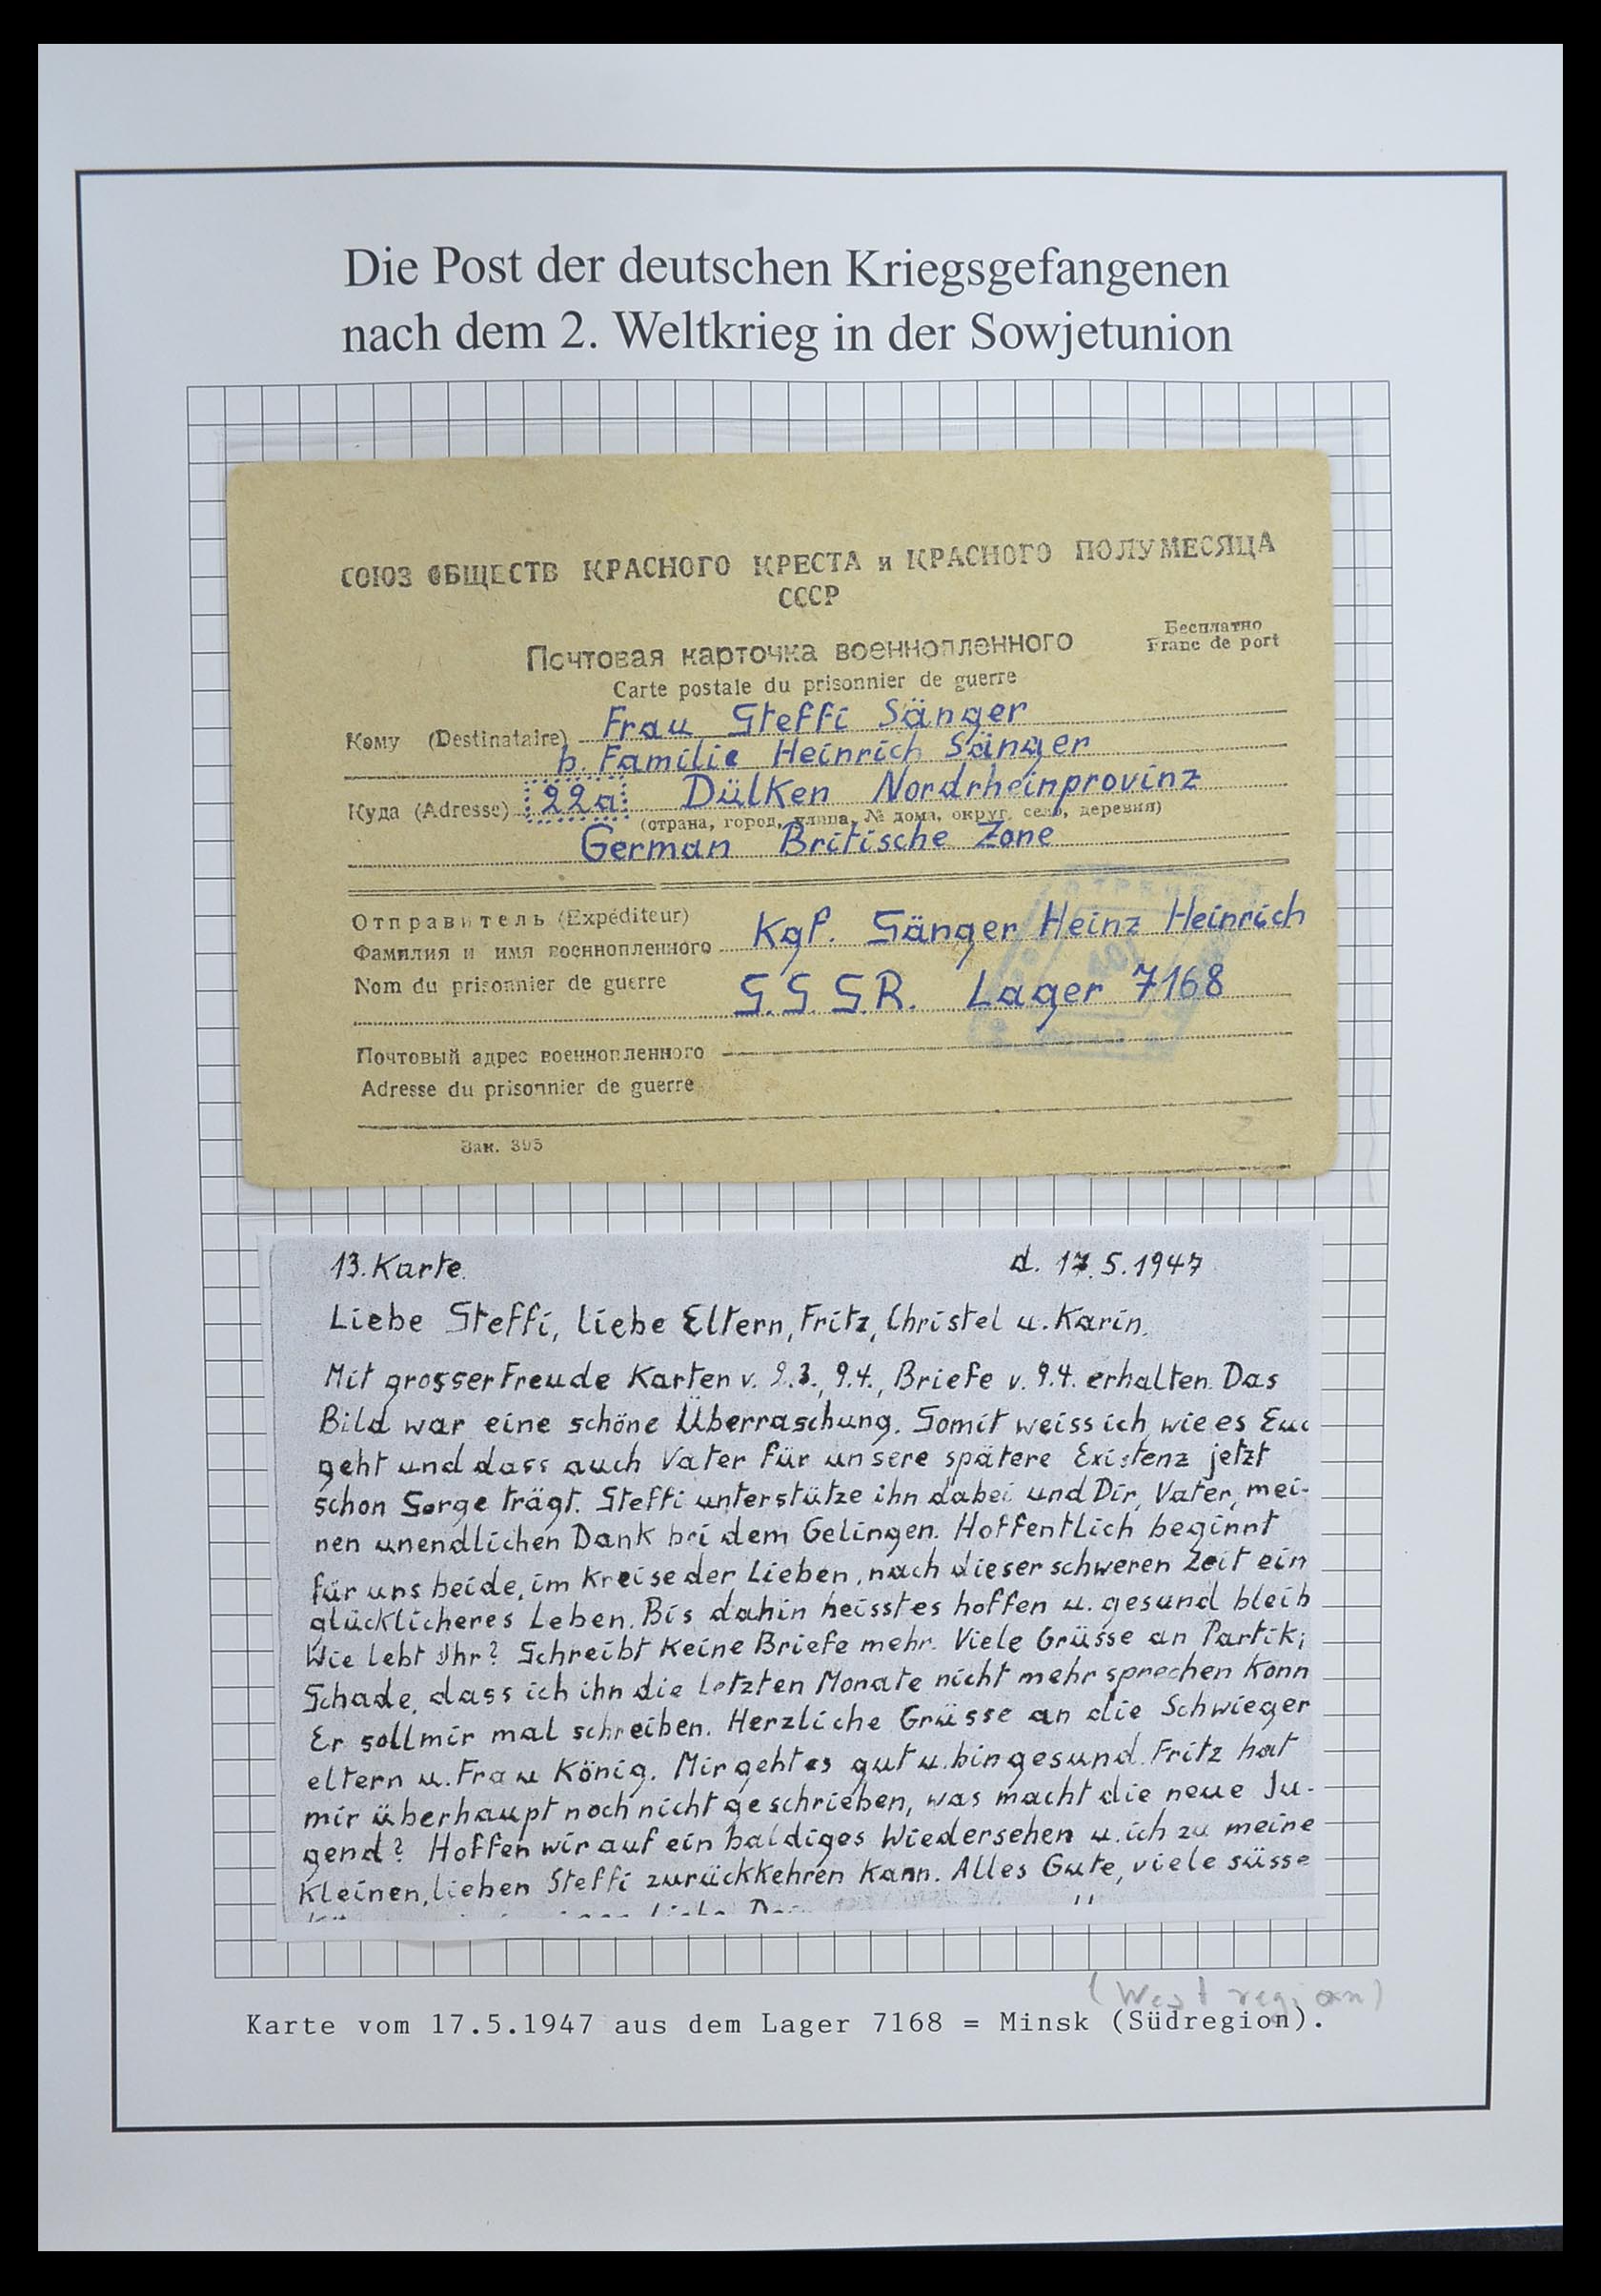 Die Post der deutschen Kriegsgefangenen
nach dem 2. Weltkrieg in der Sowjetunion
СОЮЗ ОБЩЕСТВ КРАСНОГО КРЕСТА и КРАСНОГО ПОЛУМЕСЯЦА
СССР
Бесплатно
Franc de port
Почтовая карточка военнопленного
Carte postale du prisonnier de guerre
Кому (Destinataire) Frau Steffi Sänger
b. Familie Heinrich Sänger
Куда (Adresse) 22a Dülken Nordrheinprovinz
(страна, город, улица, № дома, округ, село, деревня)
German Britische Zone
Отправитель (Expéditeur)
Фамилия и имя военнопленного Kgf. Sänger Heinz Heinrich
Nom du prisonnier de guerre S.S.S.R. Lager 7168
Почтовый адрес военнопленного
Adresse du prisonnier de guerre
Зак. 395
13. Karte. d. 17.5.1947
Liebe Steffi, liebe Eltern, Fritz, Christel u. Karin.
Mit grosser Freude Karten v. 2.3., 9.4., Briefe v. 9.4. erhalten. Das
Bild war eine schöne Überraschung. Somit weiss ich, wie es Euc
geht und dass auch Vater für unsere spätere Existenz jetzt
schon Sorge trägt. Steffi unterstütze ihn dabei und Dir, Vater, mei-
nen unendlichen Dank bei dem Gelingen. Hoffentlich beginnt
für uns beide, im Kreise der Lieben, nach dieser schweren Zeit ein
glücklicheres Leben. Bis dahin heisst es hoffen u. gesund bleib
Wie lebt Ihr? Schreibt keine Briefe mehr. Viele Grüsse an Partik
Schade, dass ich ihn die letzten Monate nicht mehr sprechen konn
Er soll mir mal schreiben. Herzliche Grüsse an die Schwieger
eltern u. Frau König. Mir geht es gut u. bin gesund. Fritz hat
mir überhaupt noch nicht geschrieben, was macht die neue Ju-
gend? Hoffen wir auf ein baldiges Wiedersehen u. ich zu meine
kleinen, lieben Steffi zurückkehren kann. Alles Gute, viele süsse
(Westregion)
Karte vom 17.5.1947 aus dem Lager 7168 = Minsk (Südregion).